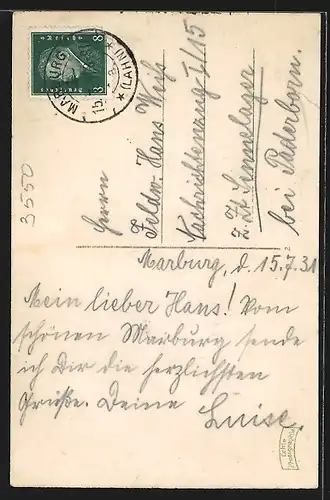 8 DEUTSCHES REICH 8
MARBURG (LAHN)
15.
Herrn
Feldw. Hans Weiß
Nachrichtenzug I/15
z. Zt. Sennelager
bei Paderborn.
3550
Marburg, d. 15.7.31
Mein lieber Hans! Vom
schönen Marburg sende
ich Dir die herzlichsten
Grüße. Deine Luise.
Echte
Photographie